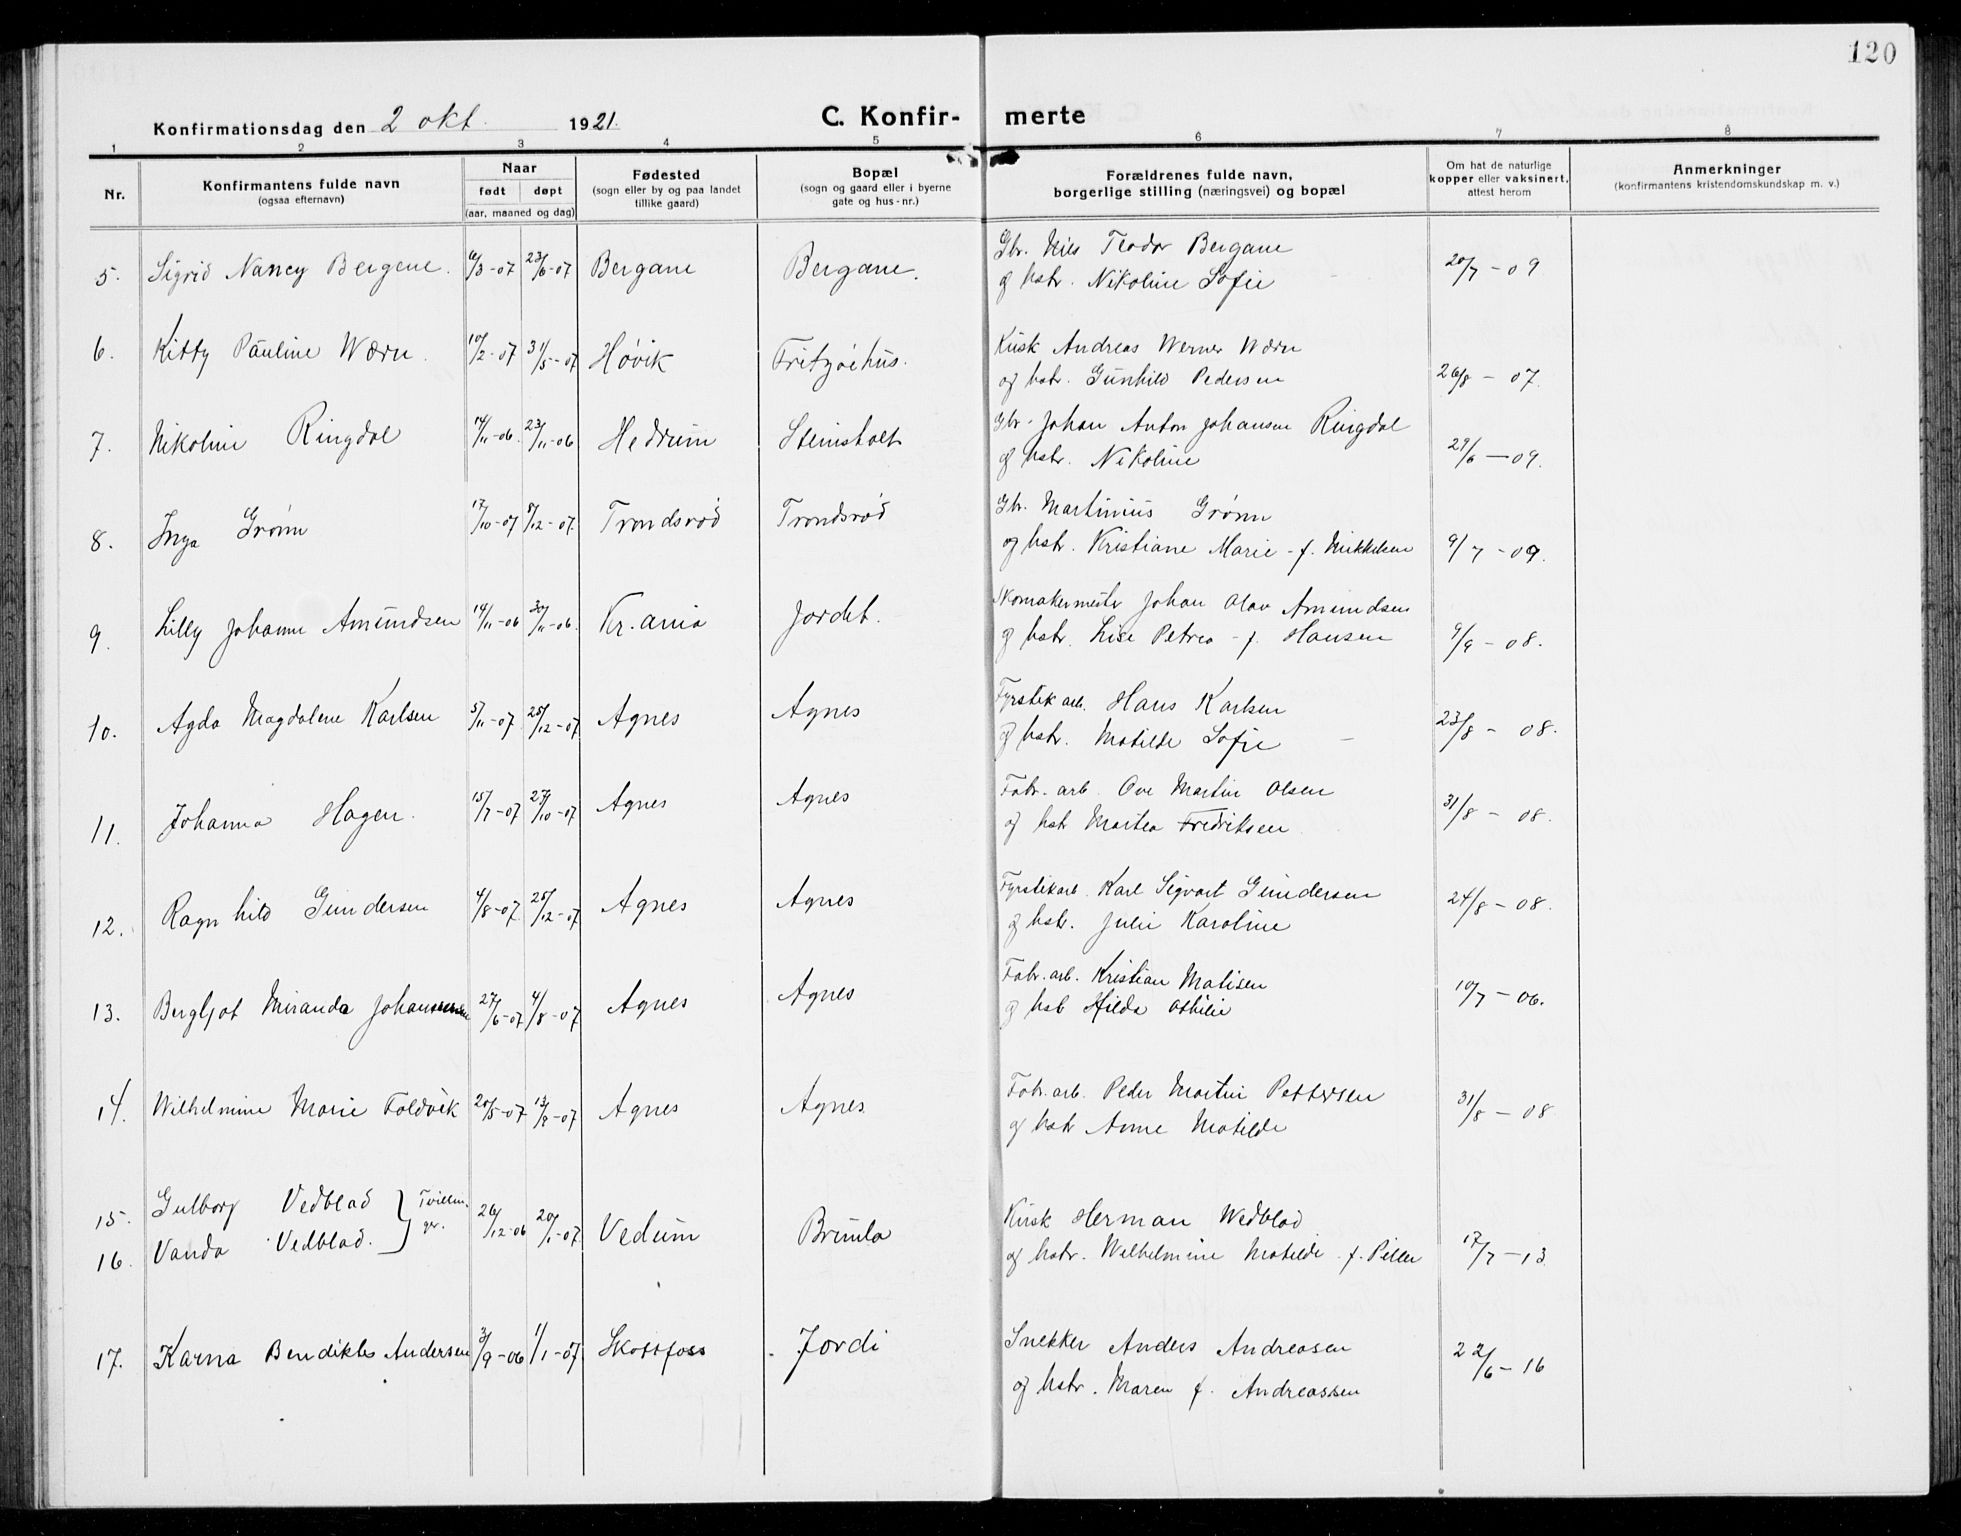 120
Konfirmationsdag den 2 okt. 1921.
C. Konfir- merte
1 2 3 4 5 6 7 8
Nr.
Konfirmantens fulde navn
(ogsaa efternavn)
Naar
født døpt
(aar, maaned og dag)
Fødested
(sogn eller by og paa landet
tillike gaard)
Bopæl
(sogn og gaard eller i byerne
gate og hus-nr.)
Forældrenes fulde navn,
borgerlige stilling (næringsvei) og bopæl
Om hat de naturlige
kopper eller vaksinert,
attest herom
Anmerkninger
(konfirmantens kristendomskundskap m. v.)
5. Sigrid Nancy Bergene. 6/3-07 23/6-07 Bergane Bergane. Gbr. Nils Teodor Bergane
og hstr. Nikoline Sofie 20/7-09
6. Kitty Pauline Wærn. 10/2-07 31/5-07 Høvik Fritzøehus. Kusk Andreas Werner Wærn
og hstr. Gunhild Pedersen 26/8-07.
7. Nikoline Ringdal 14/11-06. 23/11-06 Hedrum Steinsholt Gbr. Johan Anton Johansen Ringdal
og hstr. Nikoline 29/6-09.
8. Inga Grønn 17/10-07 8/12-07. Trondsrød Trondsrød Gbr. Martinius Grønn
og hstr. Kristiane Marie f. Mikkelsen 9/7-09.
9. Lilly Johanne Amundsen 14/11-06 30/11-06. Kr.ania Jordet. Skomakermester Johan Olav Amundsen
og hstr. Lise Petrea f. Hansen 9/9-08.
10. Agda Magdalene Karlsen 5/11-07. 25/12-07. Agnes Agnes Fyrstik arb. Hans Karlsen
og hstr. Matilde Sofie 23/8-08.
11. Johanna Hagen. 15/7-07 27/10-07 Agnes Agnes Fabr. arb. Ove Martin Olsen
og hstr Martea Fredriksen 31/8-08.
12. Ragnhild Gundersen 4/8-07 25/12-07 Agnes Agnes Fyrstikarb. Karl Sigvart Gundersen
og hstr. Julie Karoline 24/8-08.
13. Bergljot Miranda Johannesen 27/6-07 4/8-07 Agnes Agnes Fabr. arb. Kristian Matisen
og hst Hilda Othilie 10/7-06.
14. Wilhelmine Marie Foldvik 20/5-07 13/8-07 Agnes Agnes. Fabr. arb. Peder Martin Pettersen
og hstr Anne Matilde 31/8-08
15. Gulborg Vedblad } Tvillin-
ger.
16. Vanda Vedblad. 26/12-06 20/1-07 Vedum Brunla Kusk Herman Wedblad
og hstr. Wilhelmine Matilde f. Piller 17/7-13
17. Karna Bendikte Andersen 3/9-06 1/1-07 Skotfoss Jordi Snekker Anders Andreasen
og hstr. Maren f. Andreassen 22/6-16